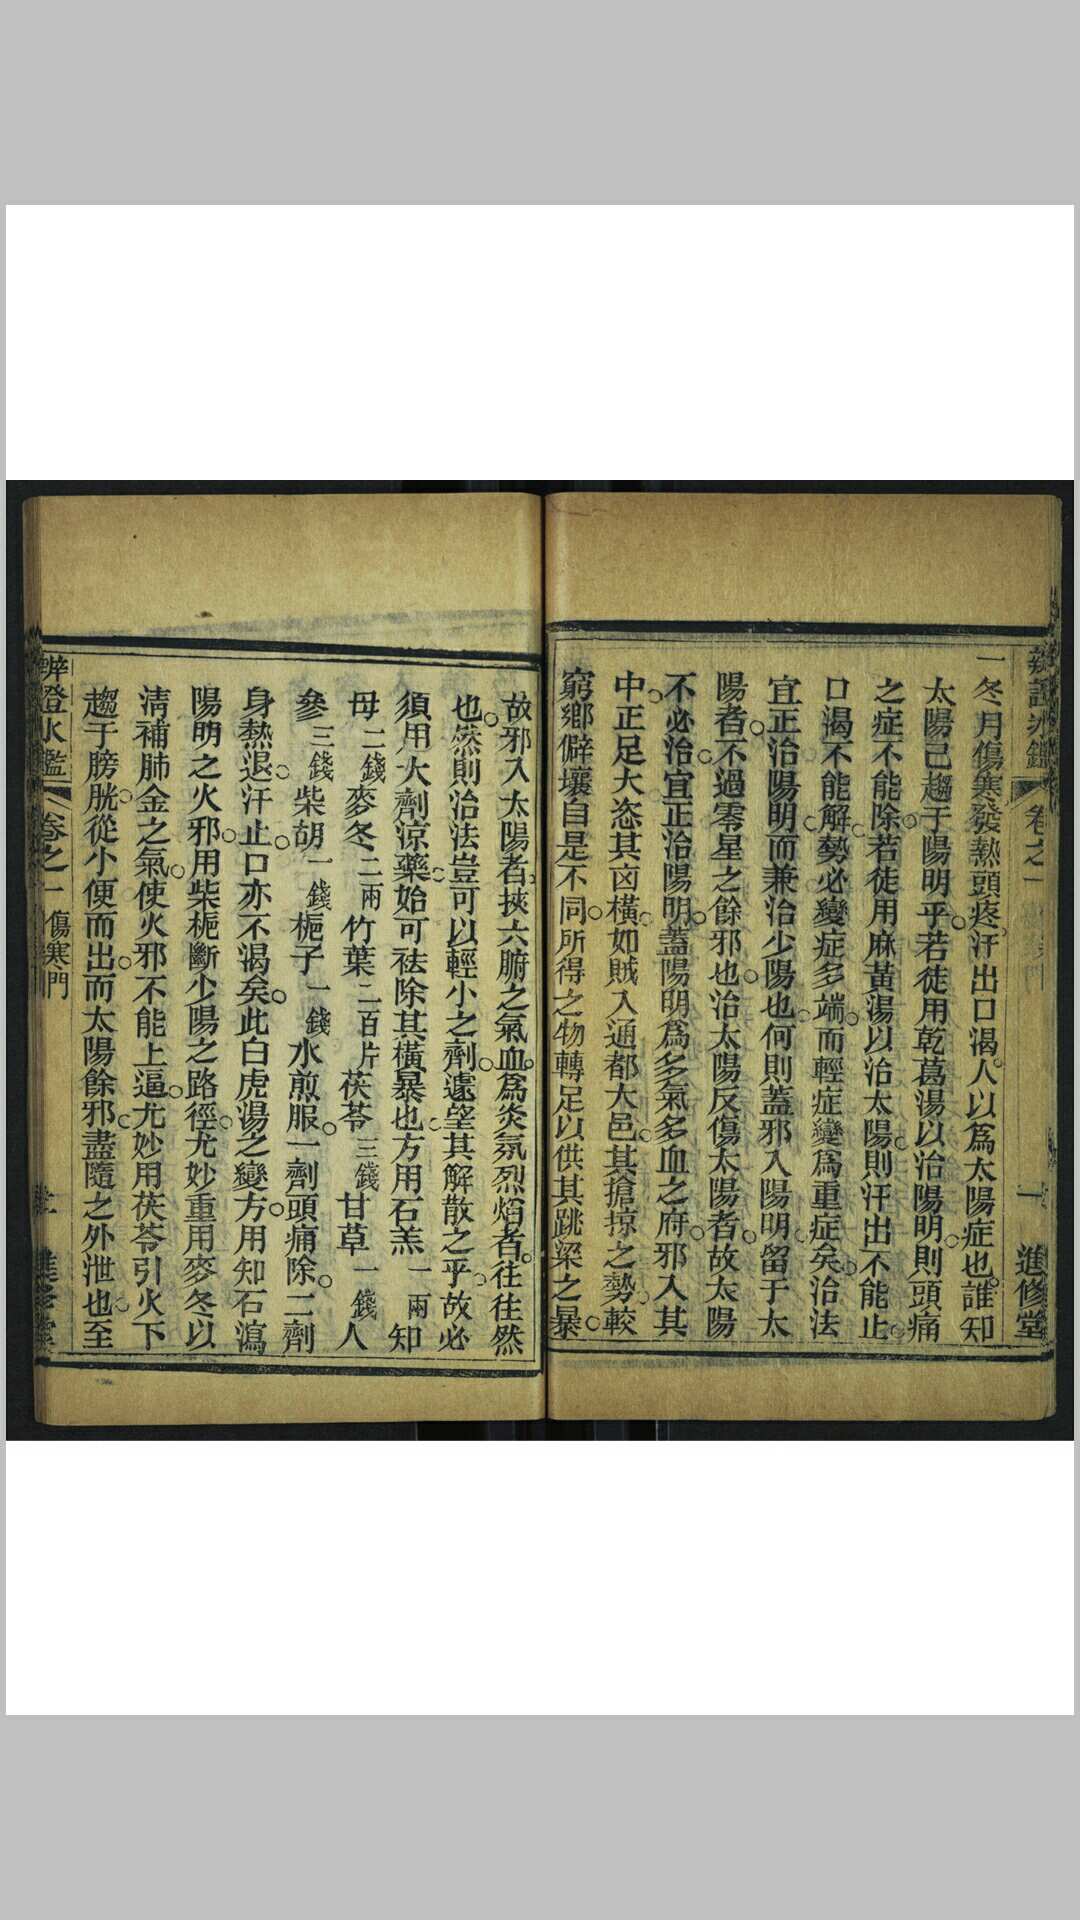 辨證冰鑑 卷之一 一 進修堂
一冬月傷寒發熱頭疼汗出口渴人以爲太陽症也誰知
太陽已趨于陽明乎若徒用乾葛湯以治陽明則頭痛
之症不能除若徒用麻黃湯以治太陽則汗出不能止
口渴不能解勢必變症多端而輕症變爲重症矣治法
宜正治陽明而兼治少陽也何則蓋邪入陽明留于太
陽者不過零星之餘邪也治太陽反傷太陽者故太陽
不必治宜正治陽明蓋陽明爲多氣多血之府邪入其
中正足大恣其囟橫如賊入通都大邑其搶掠之勢較
窮鄉僻壤自是不同所得之物轉足以供其跳梁之暴
故邪入太陽者挾六腑之氣血爲炎氛烈焰者往往然
也然則治法豈可以輕小之劑遽望其解散之乎故必
須用大劑涼藥始可祛除其橫暴也方用石羔一兩知
母二錢麥冬二兩竹葉二百片茯苓三錢甘草一錢人
參三錢柴胡一錢梔子一錢水煎服一劑頭痛除二劑
身熱退汗止口亦不渴矣此白虎湯之變方用知石瀉
陽明之火邪用柴梔斷少陽之路徑尤妙重用麥冬以
清補肺金之氣使火邪不能上逼尤妙用茯苓引火下
趨于膀胱從小便而出而太陽餘邪盡隨之外泄也至
辨證冰鑑 卷之一 傷寒門